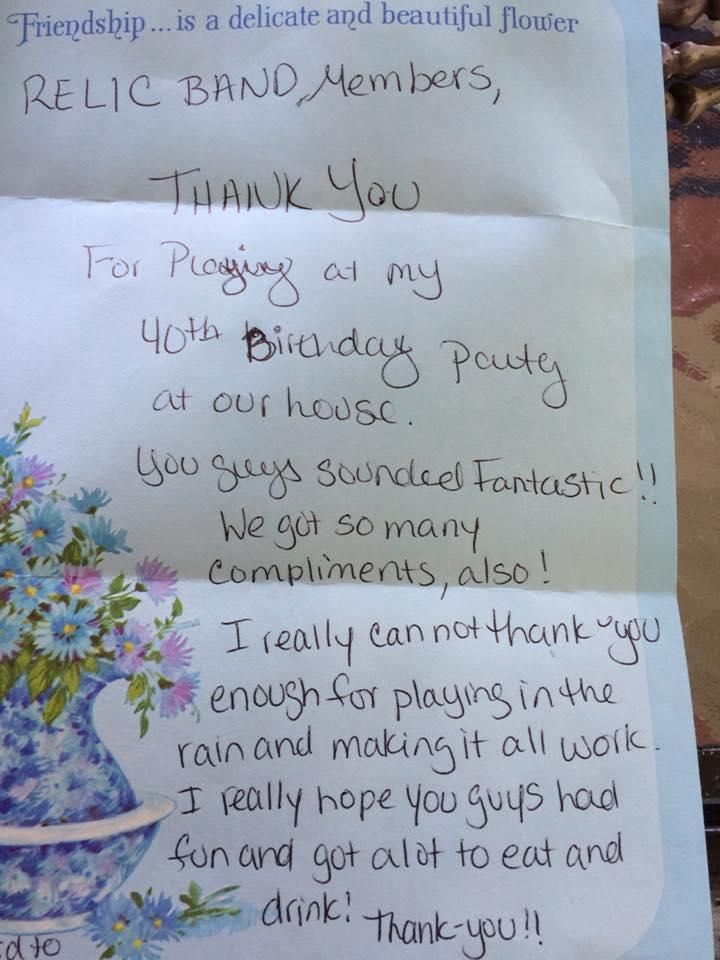 Friendship... is a delicate and beautiful flower
RELIC BAND, Members,
THANK YOU
For Playing at my
40th Birthday Party
at our house.
You guys sounded Fantastic!!
We got so many
compliments, also!
I really can not thank-you
enough for playing in the
rain and making it all work.
I really hope you guys had
fun and got alot to eat and
drink! Thank-you!!
d to